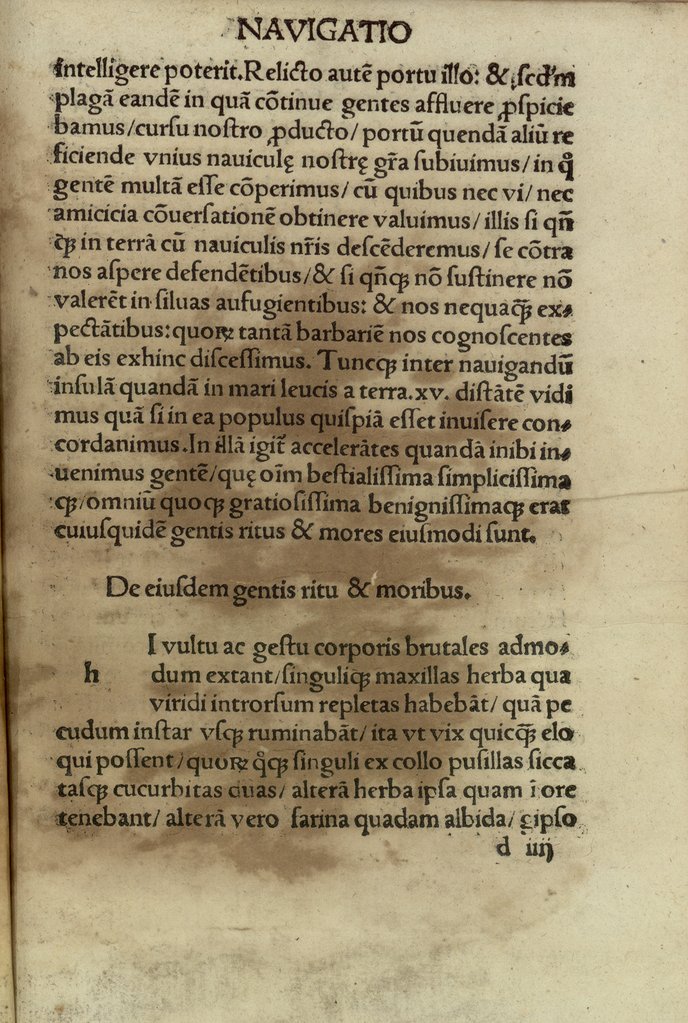 NAVIGATIO
intelligere poterit. Relicto autē portu illo: & scd'm
plagā eandē in quā cōtinue gentes affluere ꝑspicie
bamus/ cursu nostro ꝓducto/ portū quendā aliū re
ficiende vnius nauiculę nostrę gr̄a subiuimus/ in q̄
gentē multā esse cōperimus/ cū quibus nec vi/ nec
amicicia cōuersationē obtinere valuimus/ illis si qn̄
qꝫ in terrā cū nauiculis nr̄is descēderemus/ se cōtra
nos aspere defendētibus/ & si qn̄qꝫ nō sustinere nō
valerēt in siluas aufugientibus: & nos nequaqꝫ̄ ex⸗
pectātibus: quoꝝ tantā barbariē nos cognoscentes
ab eis exhinc discessimus. Tuncqꝫ inter nauigandū
insulā quandā in mari leucis a terra .xv. distātē vidi
mus quā si in ea populus quispiā esset inuisere con⸗
cordanimus. In illā igit̄ accelerātes quandā inibi in⸗
uenimus gentē/ quę oīm bestialissima simplicissima
qꝫ/ omniū quoqꝫ gratiosissima benignissimaqꝫ erat
cuiusquidē gentis ritus & mores eiusmodi sunt.
De eiusdem gentis ritu & moribus.
I vultu ac gestu corporis brutales admo⸗
h dum extant/ singuliqꝫ maxillas herba qua
viridi introrsum repletas habebāt/ quā pe
cudum instar vsqꝫ ruminabāt/ ita vt vix quicqꝫ̄ elo
qui possent/ quoꝝ q̊qꝫ singuli ex collo pusillas sicca
tasqꝫ cucurbitas duas/ alterā herba ipsa quam ī ore
tenebant/ alterā vero farina quadam albida/ gipso
d iiij